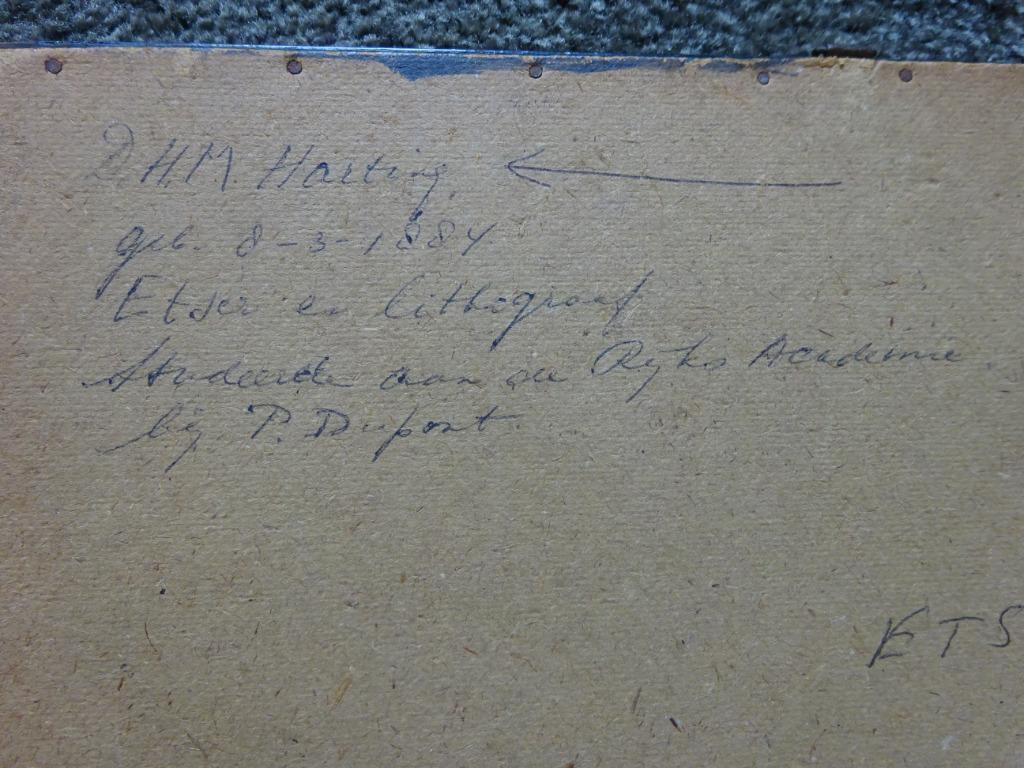 D.H.M. Harting
geb. 8-3-1884
Etser en lithograaf
Studeerde aan de Ryks Academie
bij P. Dupont
ETS